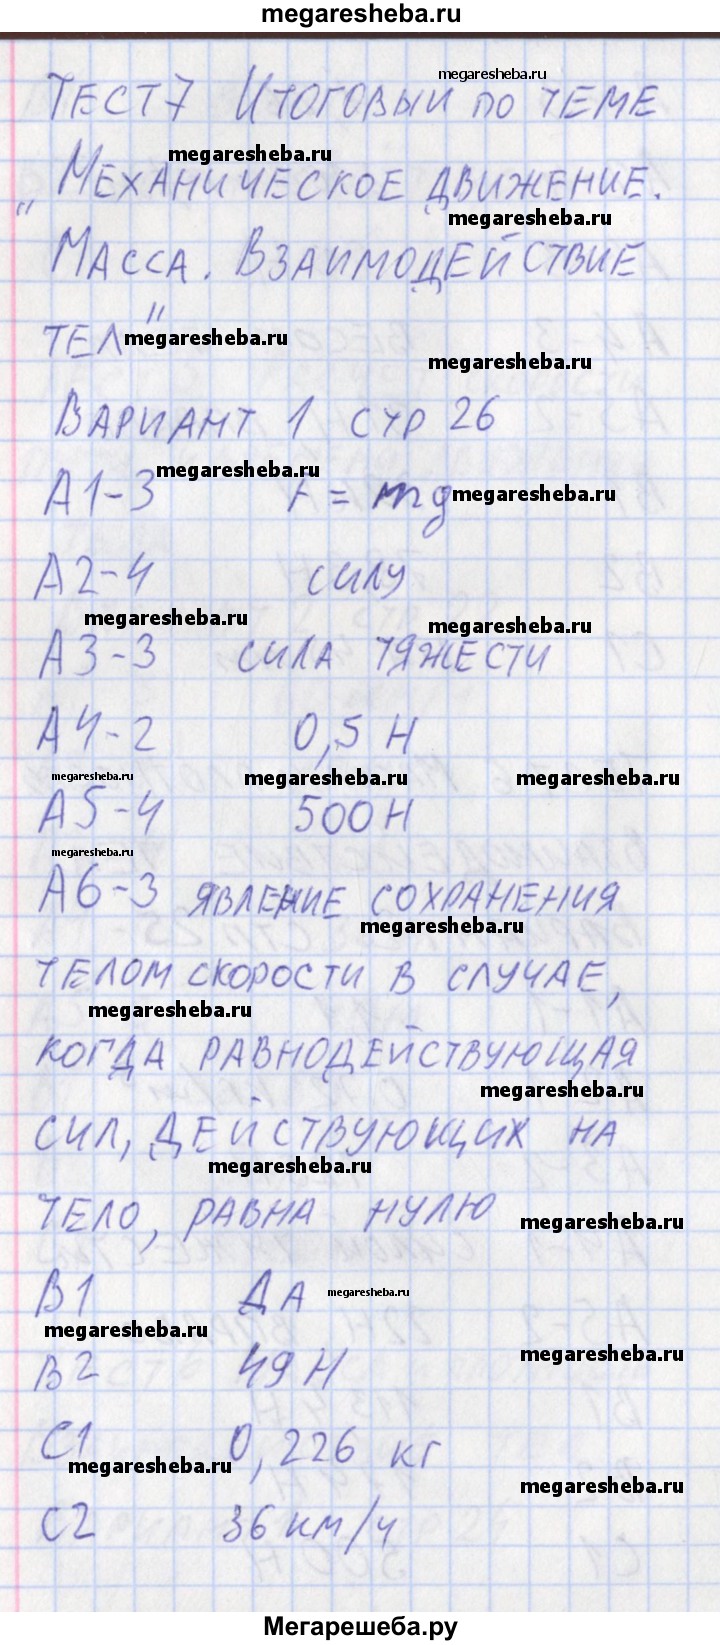 megaresheba.ru
megaresheba.ru
ТЕСТ 7 ИТОГОВЫЙ ПО ТЕМЕ
megaresheba.ru
"МЕХАНИЧЕСКОЕ ДВИЖЕНИЕ.
megaresheba.ru
МАССА. ВЗАИМОДЕЙСТВИЕ
ТЕЛ"
megaresheba.ru
megaresheba.ru
ВАРИАНТ 1 СТР 26
megaresheba.ru
А1-3 F = mg
megaresheba.ru
А2-4 СИЛУ
megaresheba.ru
megaresheba.ru
А3-3 СИЛА ТЯЖЕСТИ
А4-2 0,5 Н
megaresheba.ru
megaresheba.ru
megaresheba.ru
А5-4 500 Н
megaresheba.ru
А6-3 ЯВЛЕНИЕ СОХРАНЕНИЯ
megaresheba.ru
ТЕЛОМ СКОРОСТИ В СЛУЧАЕ,
megaresheba.ru
КОГДА РАВНОДЕЙСТВУЮЩАЯ
megaresheba.ru
СИЛ, ДЕЙСТВУЮЩИХ НА
megaresheba.ru
ТЕЛО, РАВНА НУЛЮ
megaresheba.ru
В1 ДА
megaresheba.ru
megaresheba.ru
megaresheba.ru
В2 49 Н
С1 0,226 кг
megaresheba.ru
megaresheba.ru
С2 36 км/ч
Мегарешеба.ру